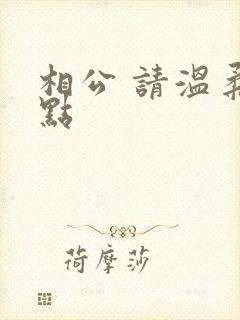 相公 請溫柔
點
荷摩莎